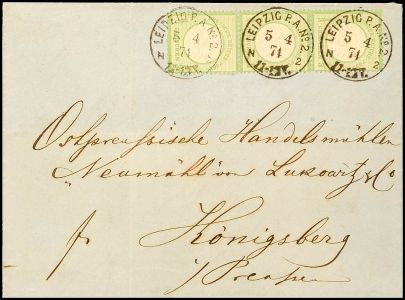 LEIPZIG P.A. No 2.
5 4
74
11-12V.
LEIPZIG P.A. No 2.
N 5 4 2
74
11-12V.
LEIPZIG P.A. No 2.
N 5 4 2
74
11-12V.
Ostpreussische Handelsmühlen
"Neumühl" von Lukowitz & Co
Königsberg
i/Preussen